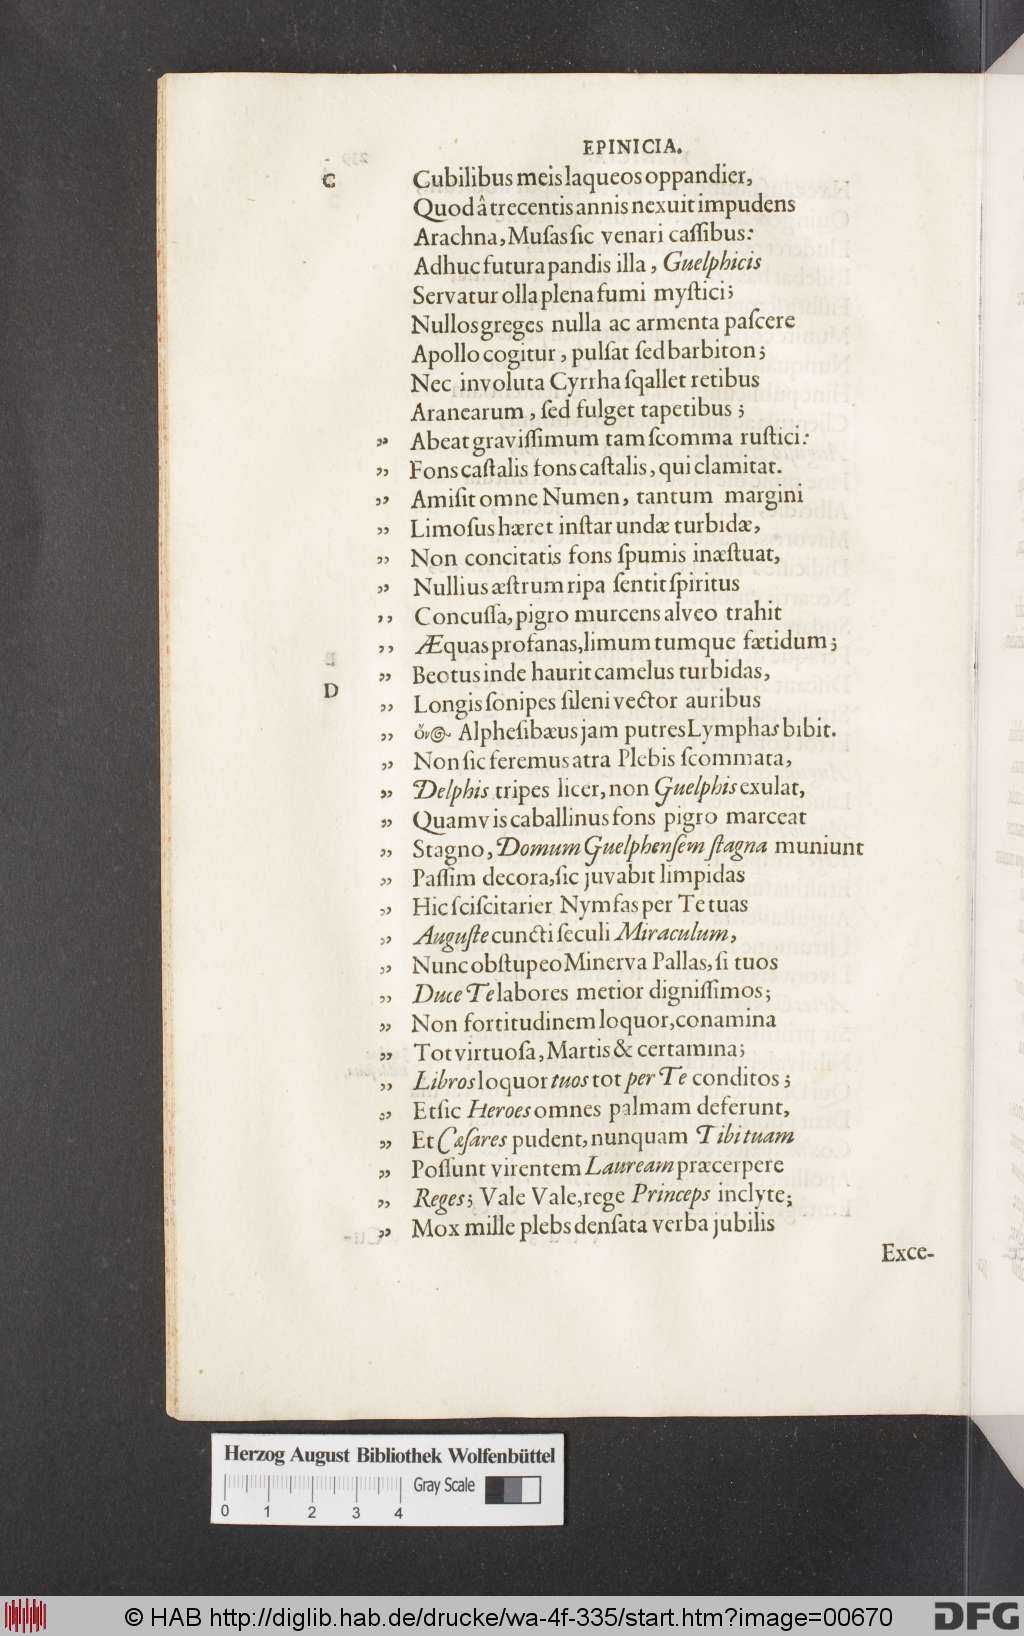 EPINICIA.
C Cubilibus meis laqueos oppandier,
Quod â trecentis annis nexuit impudens
Arachna, Muſas ſic venari caſſibus:
Adhuc futura pandis illa, Guelphicis
Servatur olla plena fumi myſtici;
Nullos greges nulla ac armenta paſcere
Apollo cogitur, pulſat ſed barbiton;
Nec involuta Cyrrha ſqallet retibus
Aranearum, ſed fulget tapetibus;
„ Abeat graviſſimum tam ſcomma ruſtici:
„ Fons caſtalis fons caſtalis, qui clamitat.
„ Amiſit omne Numen, tantum margini
„ Limoſus hæret inſtar undæ turbidæ,
„ Non concitatis fons ſpumis inæſtuat,
„ Nullius æſtrum ripa ſentit ſpiritus
„ Concuſſa, pigro murcens alveo trahit
„ Æquas profanas, limum tumque fætidum;
„ Beotus inde haurit camelus turbidas,
D
„ Longis ſonipes ſileni vector auribus
„ ὄνος Alpheſibæus jam putres Lymphas bibit.
„ Non ſic feremus atra Plebis ſcommata,
„ Delphis tripes licet, non Guelphis exulat,
„ Quamvis caballinus fons pigro marceat
„ Stagno, Domum Guelphenſem ſtagna muniunt
„ Paſſim decora, ſic juvabit limpidas
„ Hic ſciſcitarier Nymfas per Te tuas
„ Auguſte cuncti ſeculi Miraculum,
„ Nunc obſtupeo Minerva Pallas, ſi tuos
„ Duce Te labores metior digniſſimos;
„ Non fortitudinem loquor, conamina
„ Tot virtuoſa, Martis & certamina;
„ Libros loquor tuos tot per Te conditos;
„ Et ſic Heroes omnes palmam deferunt,
„ Et Cæſares pudent, nunquam Tibi tuam
„ Poſſunt virentem Lauream præcerpere
„ Reges; Vale Vale, rege Princeps inclyte;
„ Mox mille plebs denſata verba jubilis
Exce-
Herzog August Bibliothek Wolfenbüttel
Gray Scale
0 1 2 3 4
© HAB http://diglib.hab.de/drucke/wa-4f-335/start.htm?image=00670
DFG